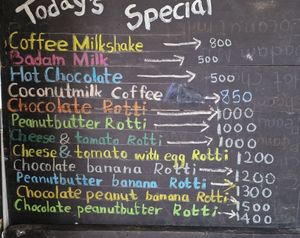 Today's Special
Coffee Milkshake → 800
Badam Milk → 500
Hot Chocolate → 500
Coconutmilk Coffee → 850
Chocolate Rotti → 1000
Peanutbutter Rotti → 1000
Cheese & tomato Rotti → 1000
Cheese & tomato with egg Rotti 1200
Chocolate banana Rotti → 1200
Peanutbutter banana Rotti → 1300
Chocolate peanut banana Rotti → 1500
Chocolate peanutbutter Rotti → 1400